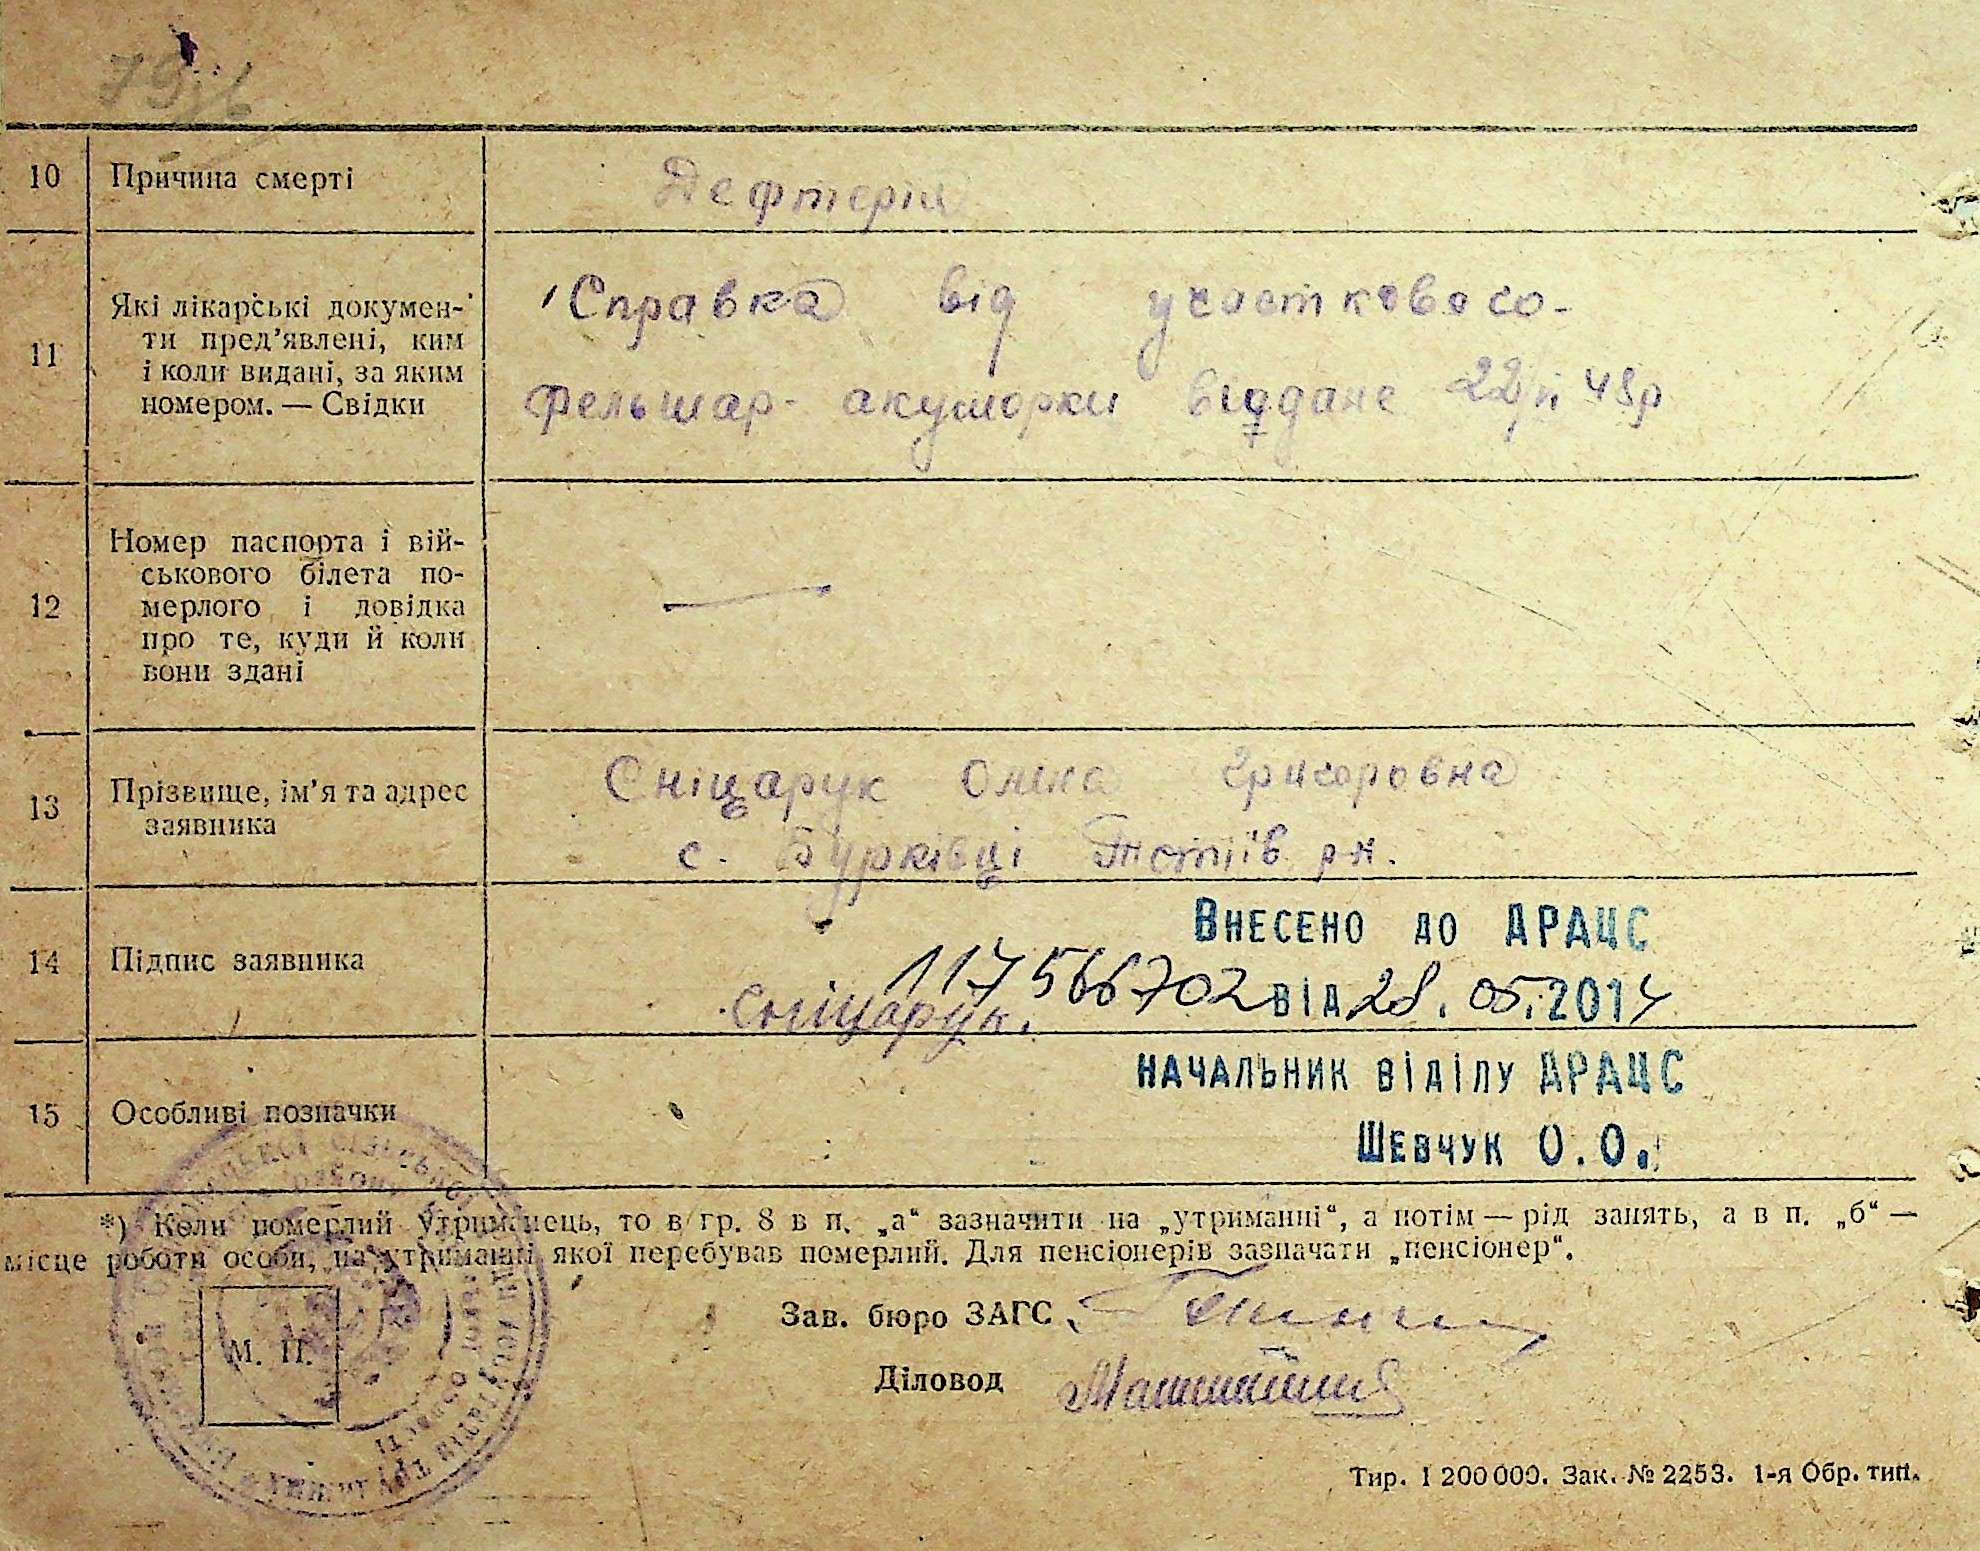 10 Причина смерті Дефтерія
11 Які лікарські докумен-
ти пред’явлені, ким
і коли видані, за яким
номером. — Свідки
Справка від участкового-
фельшар- акушорки віддане 22/II 48р
12 Номер паспорта і вій-
ськового білета по-
мерлого і довідка
про те, куди й коли
вони здані
—
13 Прізвище, ім’я та адрес
заявника
Сніцарук Олена Григоровна
с. Бурківці р-н.
14 Підпис заявника
Внесено до ДРАЦС
117566702 від 28.05.2014
Сніцарук.
Начальник відділу ДРАЦС
15 Особливі позначки
Шевчук О.О.
*) Коли померлий утриманець, то в гр. 8 в п. „а“ зазначити на „утриманні“, а потім — рід занять, а в п. „б“ —
місце роботи особи, на утриманні якої перебував померлий. Для пенсіонерів зазначати „пенсіонер“.
Зав. бюро ЗАГС
М. П.
Діловод
Тир. 1 200 000. Зак. № 2253. 1-я Обр. тип.